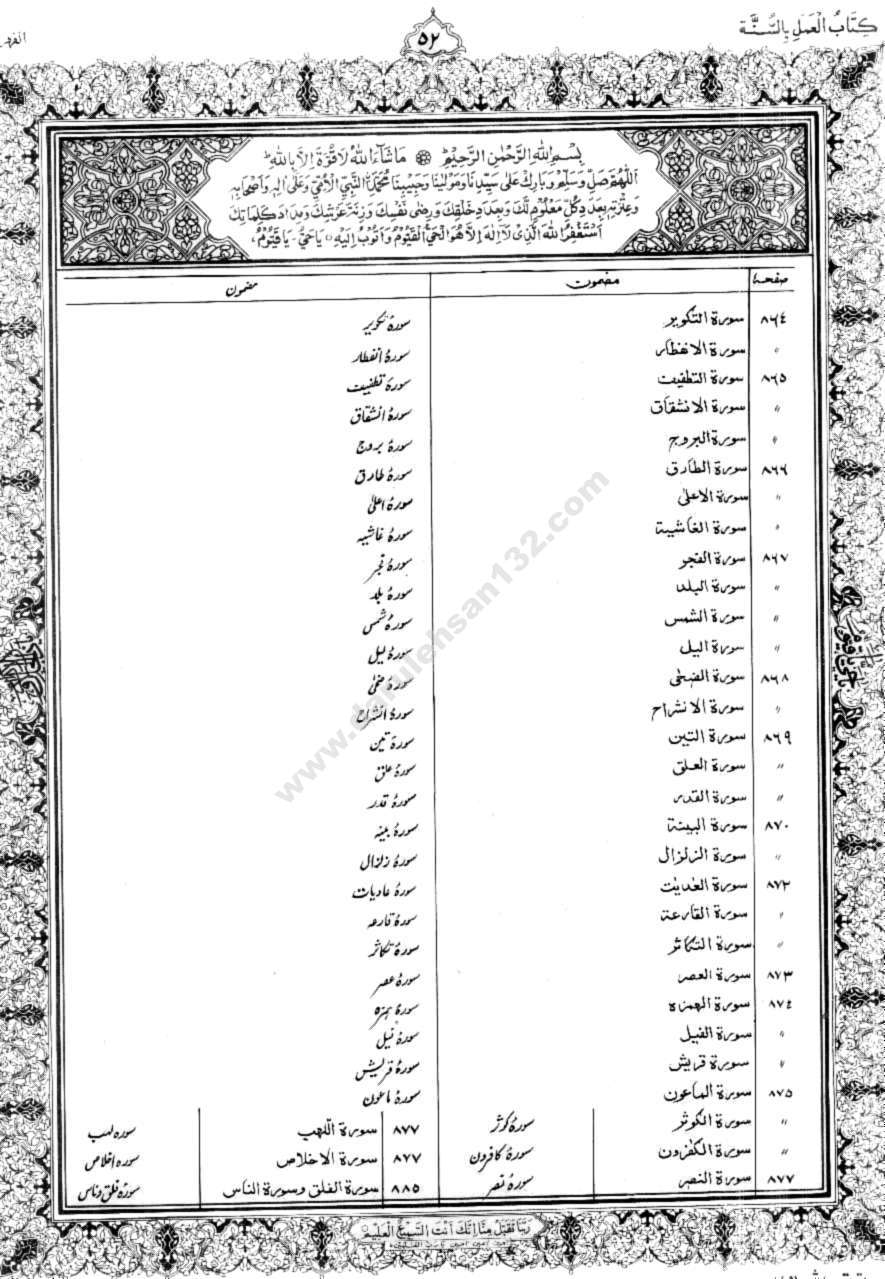 كِتَابُ الْعَمَلِ بِالسُّنَّة
٥٢
بِسْمِ اللهِ الرَّحْمٰنِ الرَّحِيْمِ ۞ مَا شَآءَ اللهُ لَا قُوَّةَ اِلَّا بِاللهِ
اَللّٰهُمَّ صَلِّ وَسَلِّمْ وَبَارِكْ عَلٰى سَيِّدِنَا وَمَوْلٰنَا وَحَبِيْبِنَا مُحَمَّدِ ۨ النَّبِيِّ الْاُمِّيِّ وَعَلٰى اٰلِهٖ وَاَصْحَابِهٖ
وَعِتْرَتِهٖ بِعَدَدِ كُلِّ مَعْلُوْمٍ لَّكَ وَبِعَدَدِ خَلْقِكَ وَرِضٰى نَفْسِكَ وَزِنَةَ عَرْشِكَ وَمِدَادَ كَلِمَاتِكَ
اَسْتَغْفِرُ اللهَ الَّذِىْ لَآ اِلٰهَ اِلَّا هُوَ الْحَيُّ الْقَيُّوْمُ وَاَتُوْبُ اِلَيْهِ ۞ يَا حَيُّ - يَا قَيُّوْمُ،
صفحه مضمون مضمون
٨٦٤ سورة التكوير سورهٔ تکویر
〃 سورة الانفطار سورهٔ انفطار
٨٦٥ سورة التطفيف سورهٔ تطفیف
〃 سورة الانشقاق سورهٔ انشقاق
〃 سورة البروج سورهٔ بروج
٨٦٦ سورة الطارق سورهٔ طارق
〃 سورة الاعلٰى سورهٔ اعلیٰ
〃 سورة الغاشية سورهٔ غاشیہ
٨٦٧ سورة الفجر سورهٔ فجر
〃 سورة البلد سورهٔ بلد
〃 سورة الشمس سورهٔ شمس
〃 سورة اليل سورهٔ لیل
٨٦٨ سورة الضحٰى سورهٔ ضحٰی
〃 سورة الانشراح سورهٔ انشراح
٨٦٩ سورة التين سورهٔ تین
〃 سورة العلق سورهٔ علق
〃 سورة القدر سورهٔ قدر
٨٧٠ سورة البينة سورهٔ بینہ
〃 سورة الزلزال سورهٔ زلزال
٨٧٢ سورة العٰديٰت سورهٔ عادیات
〃 سورة القارعة سورهٔ قارعہ
〃 سورة التكاثر سورهٔ تکاثر
٨٧٣ سورة العصر سورهٔ عصر
٨٧٤ سورة الهمزه سورهٔ ہمزہ
〃 سورة الفيل سورهٔ فیل
〃 سورة قريش سورهٔ قریش
٨٧٥ سورة الماعون سورهٔ ماعون
〃 سورة الكوثر سورهٔ کوثر ٨٧٧ سورة اللهب سورہ لہب
〃 سورة الكٰفرون سورهٔ کافرون ٨٧٧ سورة الاخلاص سورہ اخلاص
٨٧٧ سورة النصر سورهٔ نصر ٨٨٥ سورة الفلق وسورة الناس سورہ فلق وناس
رَبَّنَا تَقَبَّلْ مِنَّا اِنَّكَ اَنْتَ السَّمِيْعُ الْعَلِيْمُ
www.darulehsan132.com